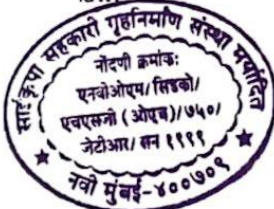 साईकृपा सहकारी गृहनिर्माण संस्था मर्यादित
नोंदणी क्रमांक:
एनबीओएम/सिडको/
एचएसजी (ओएच)/७५०/
जेटीआर/ सन १९९९
नवी मुंबई-४००७०९